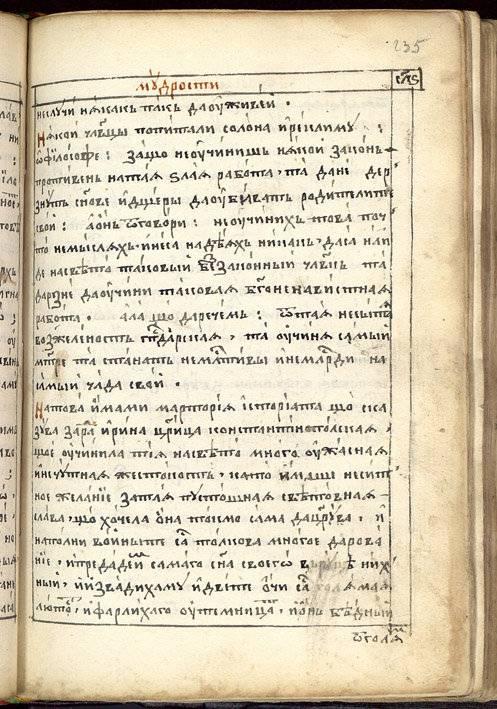 235
мꙋ́дрости
с҃лѕ
неслꙋчи нѣкакъ такъ даоуживей .
Нѣкои члвцы попитали солона ирекли мꙋ :
ѽфилософе : защо неоучинишъ нѣкои законъ
противенъ натаѧ ѕлаѧ работа , та дане дер
знꙋтъ сн҃ове идщери даоубиватъ родителите
свои : аонъ ѿговори : неоучинихъ това поч
то немыслѧхъ инеса надѣѧхъ никакъ , даса наи
де насвѣто таковый беззаконный члвкъ та
дарзне даоучини таковаѧ бг҃оненавистнаѧ
работа . ала що даречемъ : ѿтаѧ несыта
возжеленость гпⷭ҇дарскаѧ , та оучинѧ самый
мт҃ре та станатъ немл҃тивы инемл҃рди на
самый чада свои .
Натова имами марторіѧ історіата що ска
зꙋва зара́ди ирина цр҃ица константінополскаѧ ,
щое оучинила таѧ насвѣто много оужаснаѧ
инечꙋтнаѧ жестокость , като имаше несит
ное желаніе затаѧ пꙋстошнаѧ свѣтовнаѧ
слава , що хочела она токмо сама дацр҃ꙋва , и
наполни войныте са толкова многое дарова
ніе , ипредадеи самаго сн҃а своего вър ни х
ный , иизвадиха мꙋ идвете очи са голѣмаѧ
лютость , ифарлиха го оутемница , ионъ бѣдный
ѿголѧ